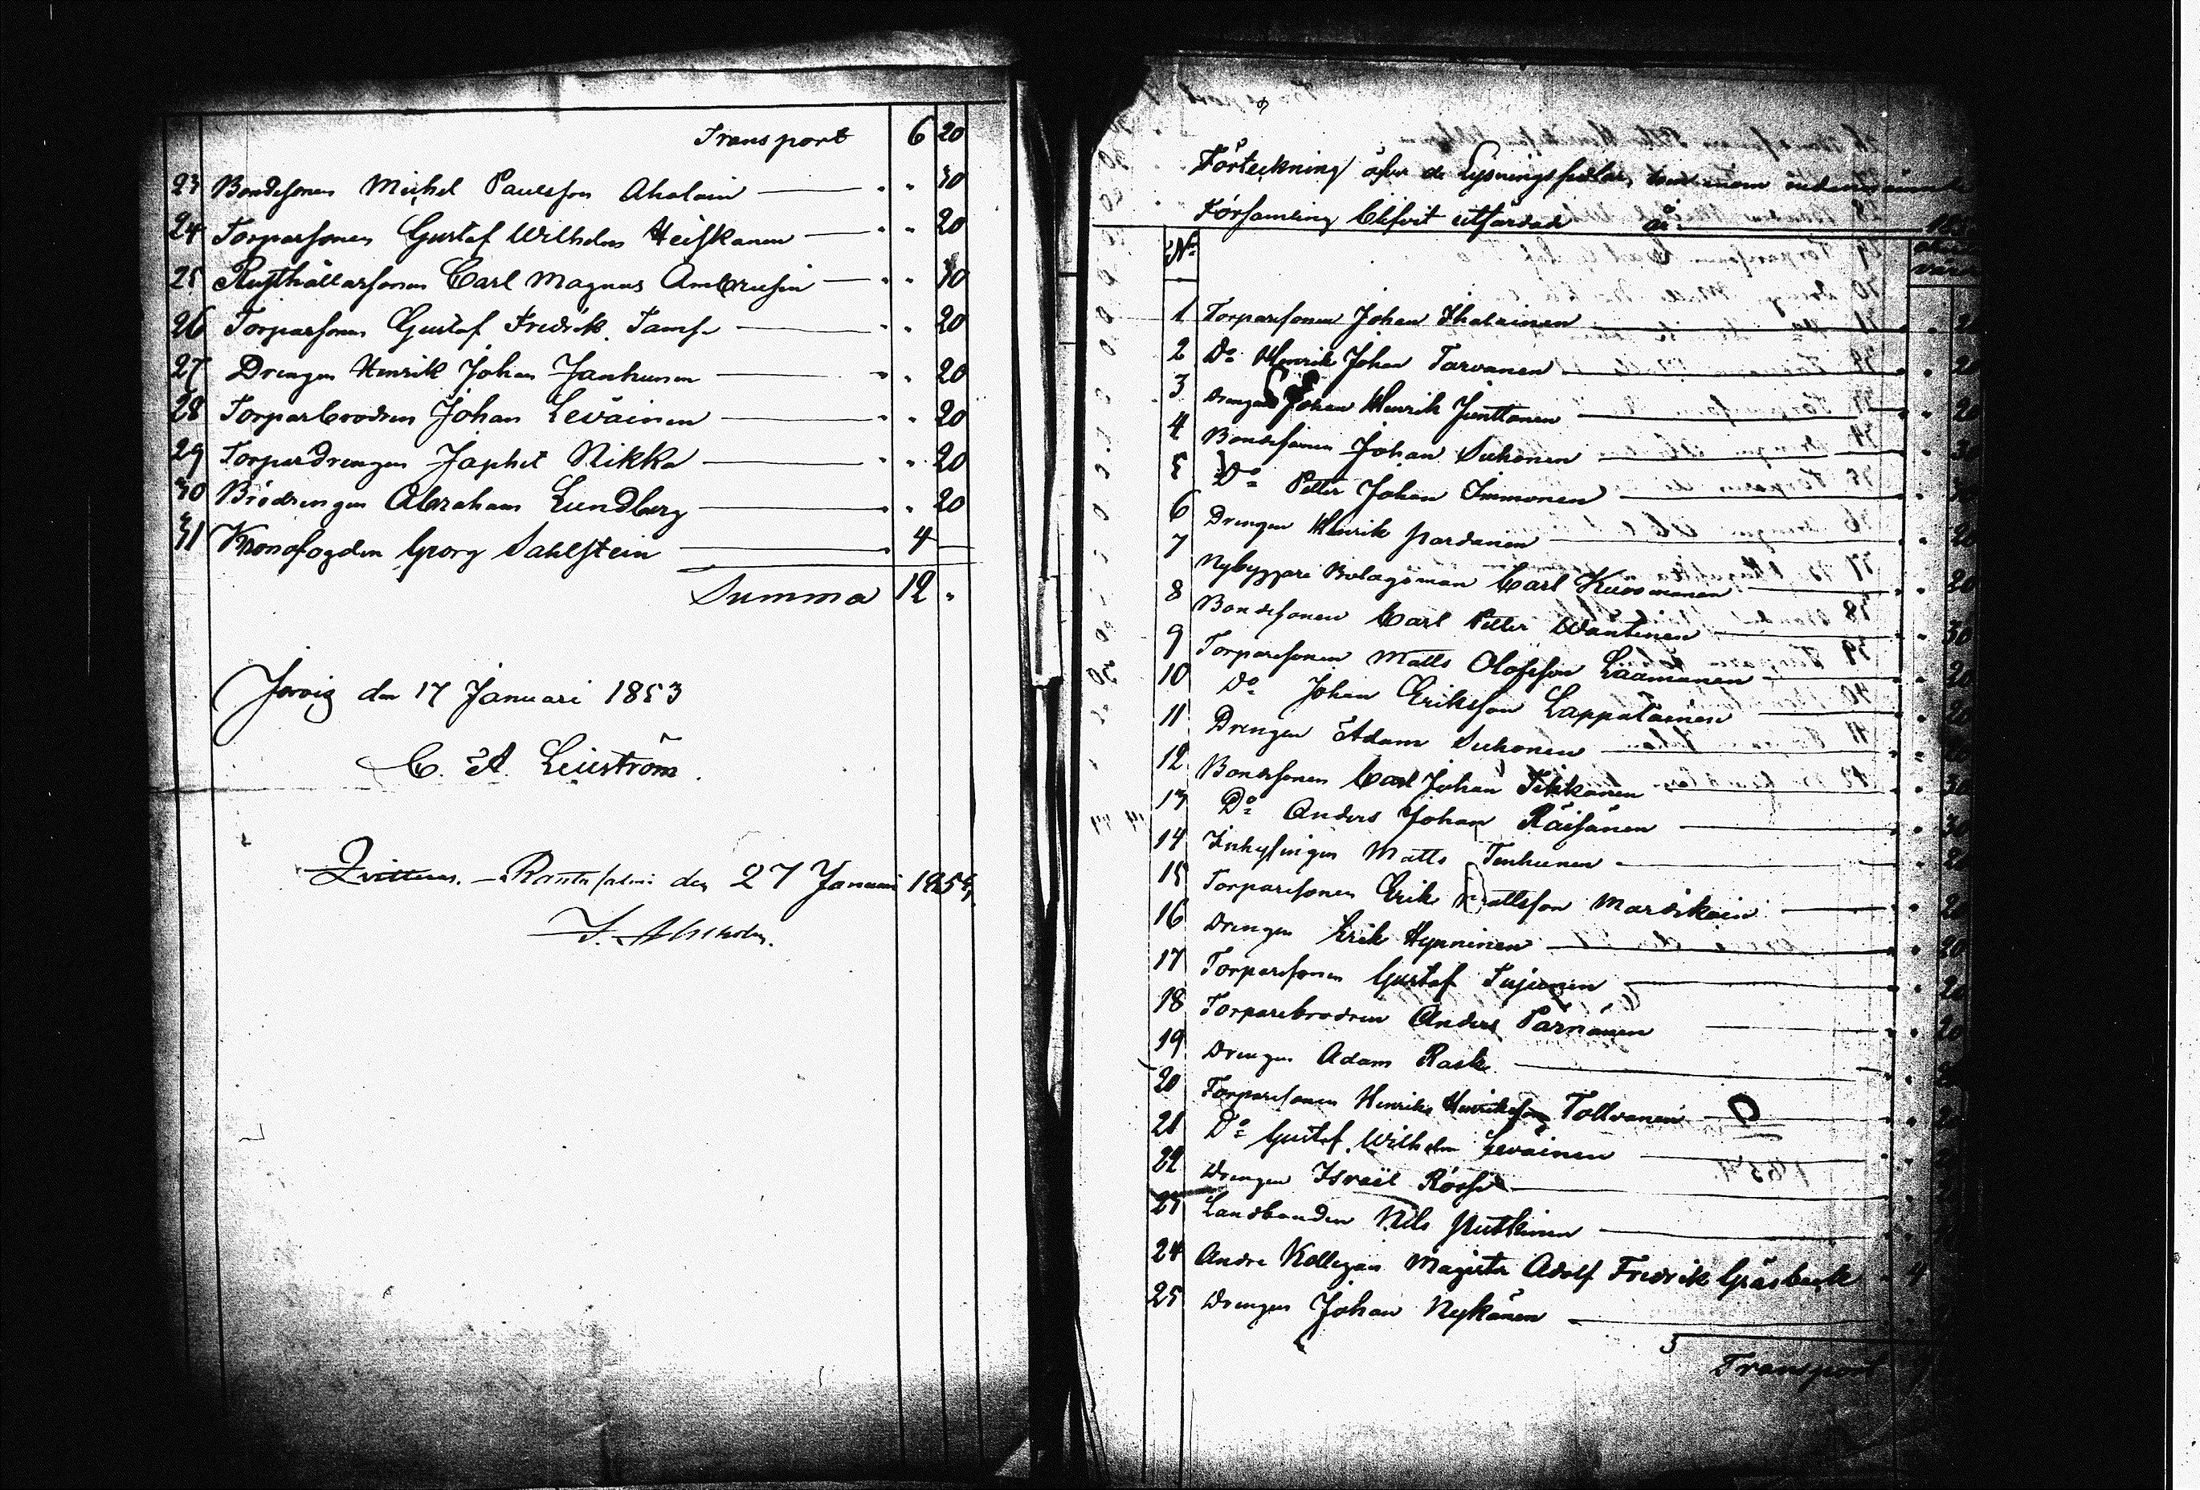 Transport 6 20
23 Bondesonen Michel Paulsson Ahalain " " 30
24 Torparsonen Gustaf Wilhelm Heiskanen " " 20
25 Rusthållarsonen Carl Magnus Ambrusin " " 30
26 Torparsonen Gustaf Fredrik " " 20
27 Drengen Henrik Johan Janhunen " " 20
28 Torparbrodren Johan Leväinen " " 20
29 Torpardrengen Japhet Nikka " " 20
30 Abraham Lundberg " " 20
31 Kronofogden Georg Sahlstein " 4 —
Summa 12 "
Jorois den 17 Januari 1853
C. A. Leiström.
Qvitteras. — Rantasalmi den 27 Januari 1854,
Förteckning öfver de Lysningssedlar, som inom
Församling blifvit utfärdade år 185
No
1 Torparesonen Johan Ihalainen " " 20
2 Do Henrik Johan Tarvanen " " 20
3 Drengen Johan Henrik Junttonen " " 20
4 Bondesonen Johan Suhonen " " 30
5 Do Petter Johan Immonen " " 30
6 Drengen Henrik Pardanen " " 20
7 Nybyggare Bolagsman Carl Kuosmanen " " 20
8 Bondesonen Carl Petter Wantinen " " 30
9 Torparesonen Matts Olofsson Laamanen " " 20
10 Do Johan Eriksson Lappalainen " " 20
11 Drengen Adam Suhonen " "
12 Bondesonen Carl Johan Tikkanen " " 30
13 Do Anders Johan Räisänen " " 30
14 Inhysingen Matts Tenhunen " " 20
15 Torparesonen Erik Mattsson Marsikain " " 20
16 Drengen Erik Hynninen " " 20
17 Torparesonen Gustaf Tujunen " " 20
18 Torparebrodren Anders Parnänen " " 20
19 Drengen Adam Rask " " 20
20 Torparesonen Henrik Henriksson Tollvanen " " 20
21 Do Gustaf Wilhelm Leväinen " "
22 Drengen Israël Rössi " "
23 Landbonden Nils Putkinen " "
24 Andre Kollegan Magister Adolf Fredrik Gråsbeck " 4
25 Drengen Johan Nykänen
Transport